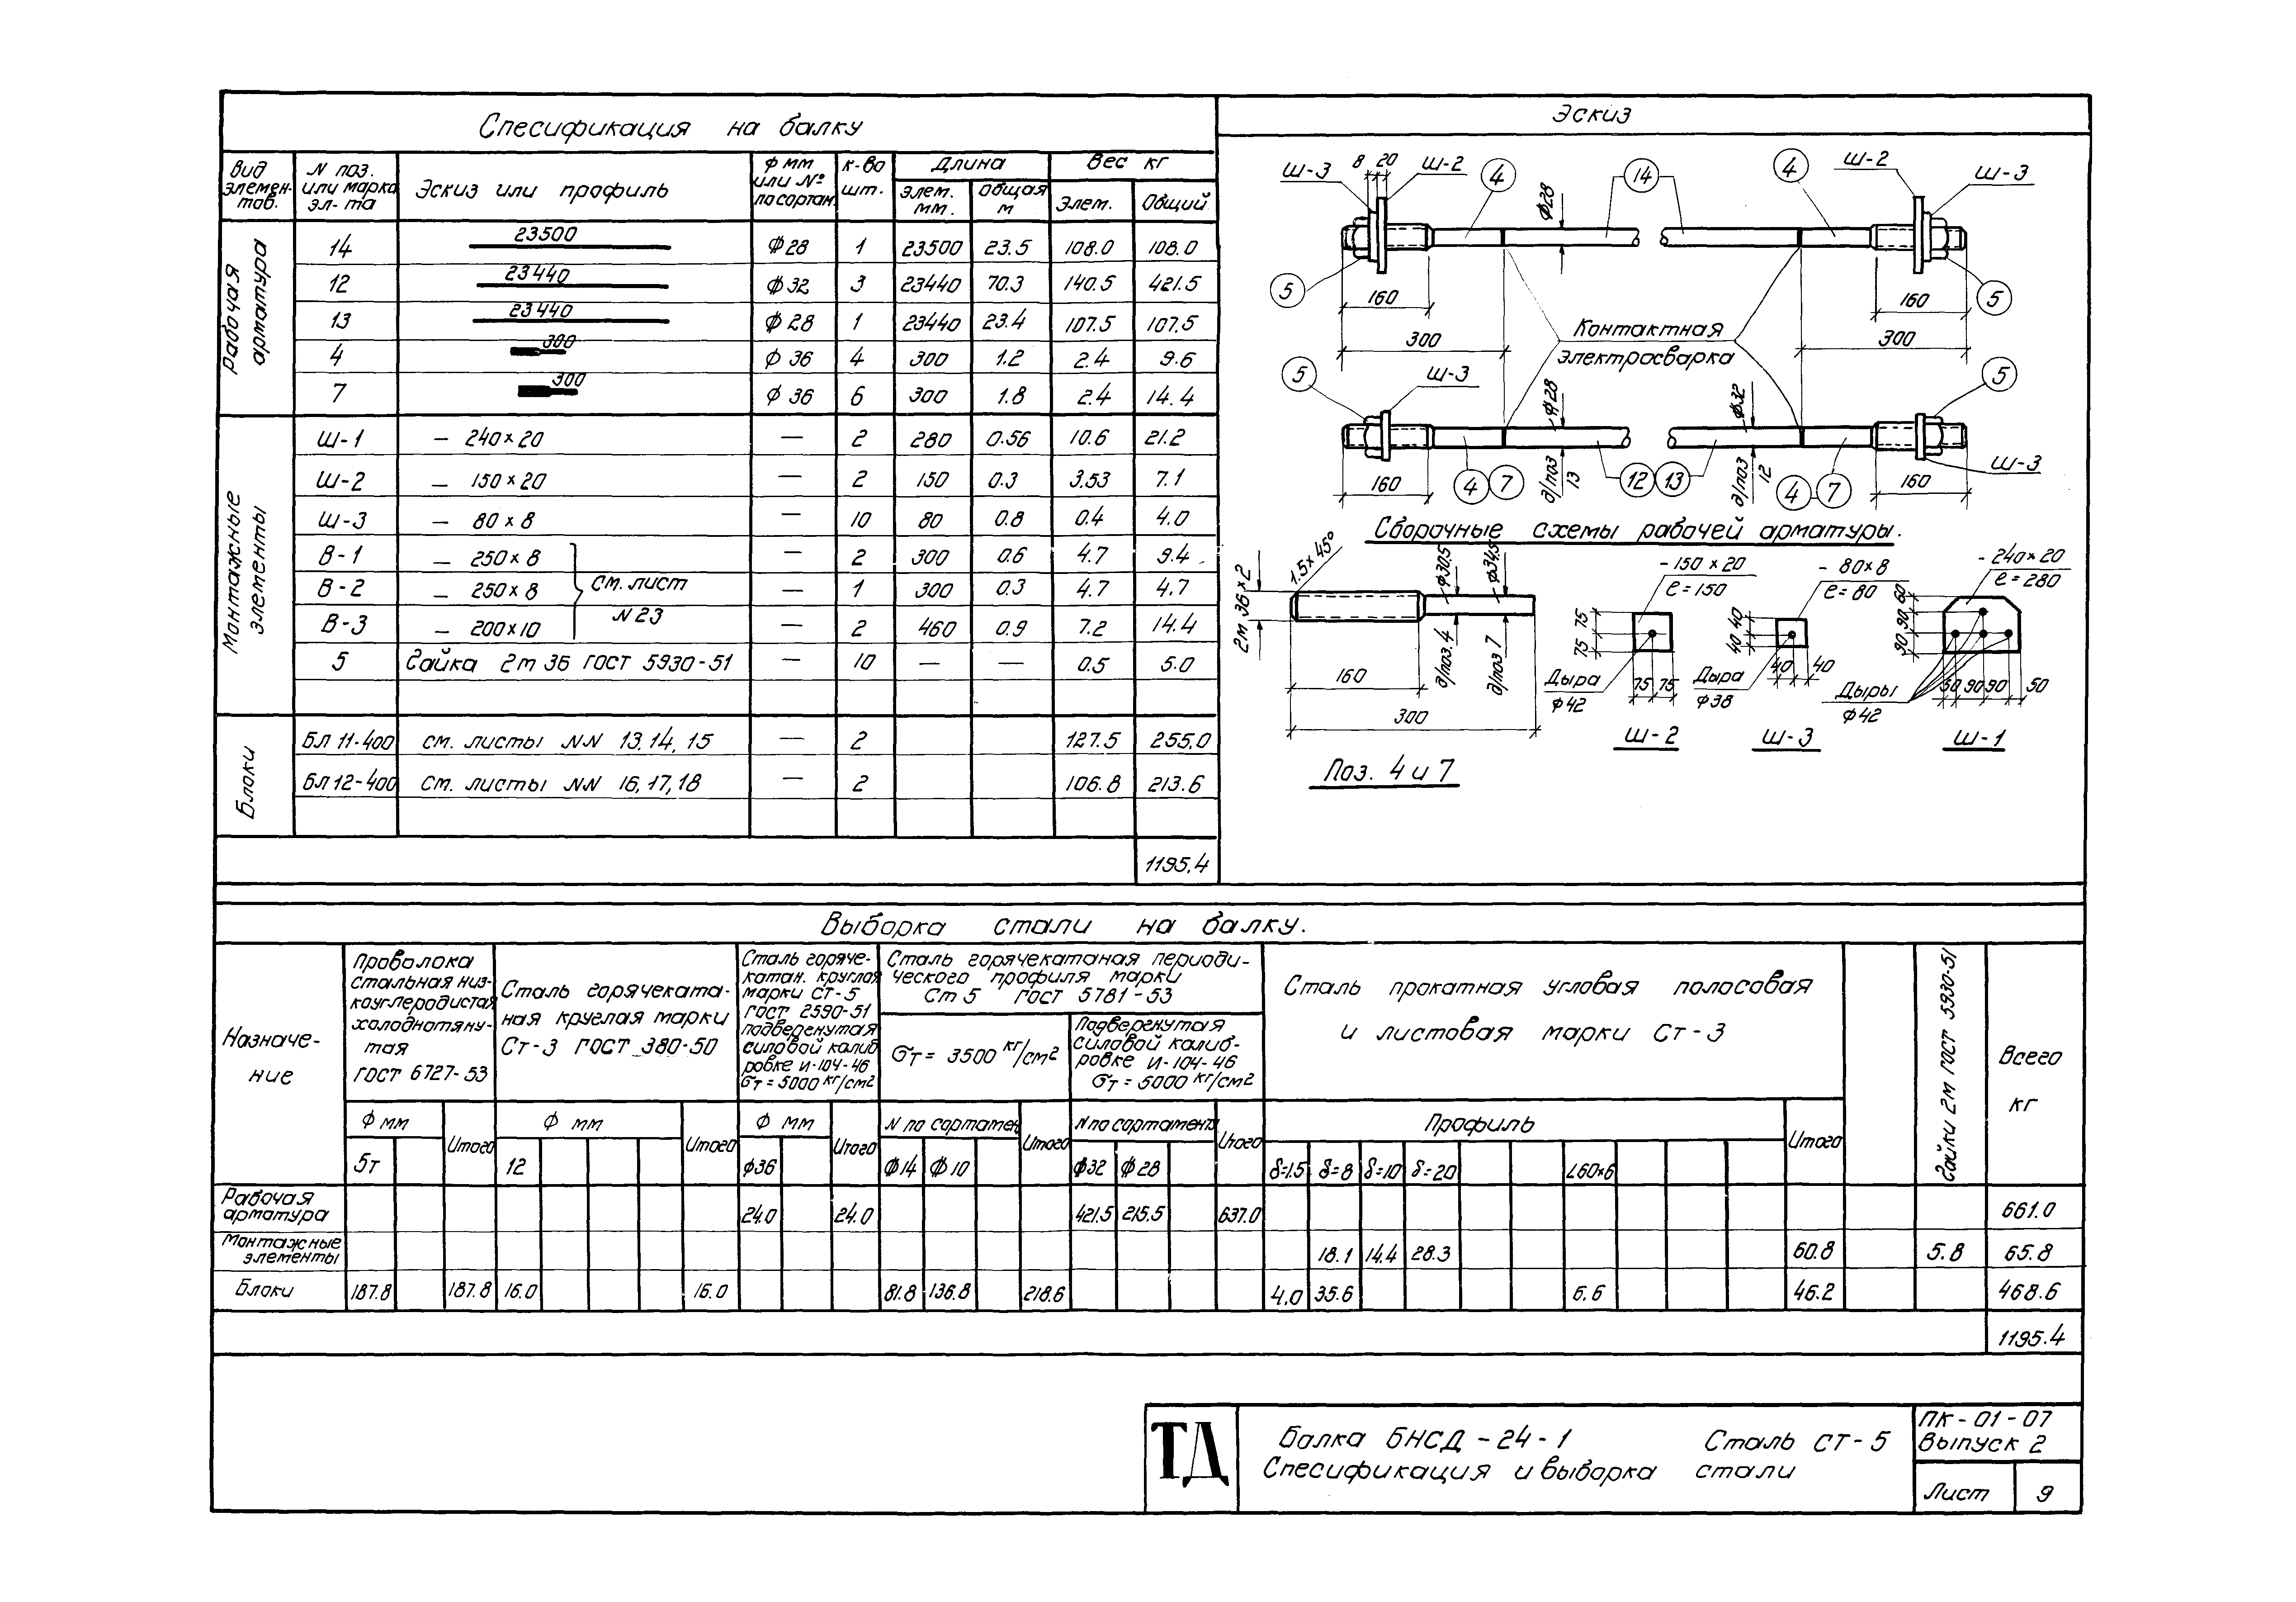 Спесификация на балку
Вид элемен- тов.
N поз. или марка эл-та
Эскиз или профиль
ф мм или № по сортам.
к-во шт.
Длина
Элем. мм.
Общая м
Вес кг
Элем.
Общий
Рабочая арматура
14 23500 ф28 1 23500 23.5 108.0 108.0
12 23440 ф32 3 23440 70.3 140.5 421.5
13 23440 ф28 1 23440 23.4 107.5 107.5
4 300 ф 36 4 300 1.2 2.4 9.6
7 300 ф 36 6 300 1.8 2.4 14.4
Монтажные элементы
Ш-1 – 240×20 — 2 280 0.56 10.6 21.2
Ш-2 – 150×20 — 2 150 0.3 3.53 7.1
Ш-3 – 80×8 — 10 80 0.8 0.4 4.0
В-1 – 250×8 — 2 300 0.6 4.7 9.4
В-2 – 250×8 — 1 300 0.3 4.7 4.7
В-3 – 200×10 — 2 460 0.9 7.2 14.4
см. лист
N 23
5 Гайка 2м 36 ГОСТ 5930-51 — 10 — — 0.5 5.0
Блоки
БЛ 11-400 см. листы NN 13,14,15 — 2 127.5 255.0
БЛ 12-400 см. листы NN 16,17,18 — 2 106.8 213.6
1195.4
Эскиз
Ш-3 8 20 Ш-2 4 ф28 14 4 Ш-2 Ш-3
5 160 160 5
300 Контактная 300
электросварка
5 Ш-3 ф28 ф32 5
160 4 7 д/поз 13 12 13 д/поз 12 4 7 160 Ш-3
Сборочные схемы рабочей арматуры.
2м 36×2 1.5×45° ф30.5 ф34.5
д/поз. 4 д/поз 7
160
300
Поз. 4 и 7
- 150×20
ℓ=150
75 75
Дыра
ф42
75 75
Ш-2
- 80×8
ℓ=80
40 40
Дыра
ф38
40 40
Ш-3
- 240×20
ℓ=280
60 90 90
Дыры
ф42
50 90 90 50
Ш-1
Выборка стали на балку.
Назначе-
ние
Проволока
стальная низ-
коуглеродистая
холоднотяну-
тая
ГОСТ 6727-53
Сталь горячеката-
ная круглая марки
Ст-3 ГОСТ 380-50
Сталь горяче-
катан. круглая
марки СТ-5
ГОСТ 2590-51
подвергнутая
силовой калиб
ровке И-104-46
σт=5000 кг/см2
Сталь горячекатаная периоди-
ческого профиля марки
Ст 5 ГОСТ 5781-53
σт = 3500 кг/см2
Подвергнутая
силовой калиб-
ровке И-104-46
σт = 5000 кг/см2
Сталь прокатная угловая полосовая
и листовая марки Ст-3
Гайки 2м ГОСТ 5930-51
Всего
кг
ф мм Итого ф мм Итого ф мм Итого N по сортамен Итого N по сортамент Итого Профиль Итого
5т 12 ф36 ф14 ф10 ф32 ф28 δ=1.5 δ=8 δ=10 δ=20 L60×6
Рабочая
арматура 24.0 24.0 421.5 215.5 637.0 661.0
Монтажные
элементы 18.1 14.4 28.3 60.8 5.8 65.8
Блоки 187.8 187.8 16.0 16.0 81.8 136.8 218.6 4.0 35.6 6.6 46.2 468.6
1195.4
ТД
Балка БНСД-24-1 Сталь СТ-5
Спесификация и выборка стали
ПК-01-07
Выпуск 2
Лист 9